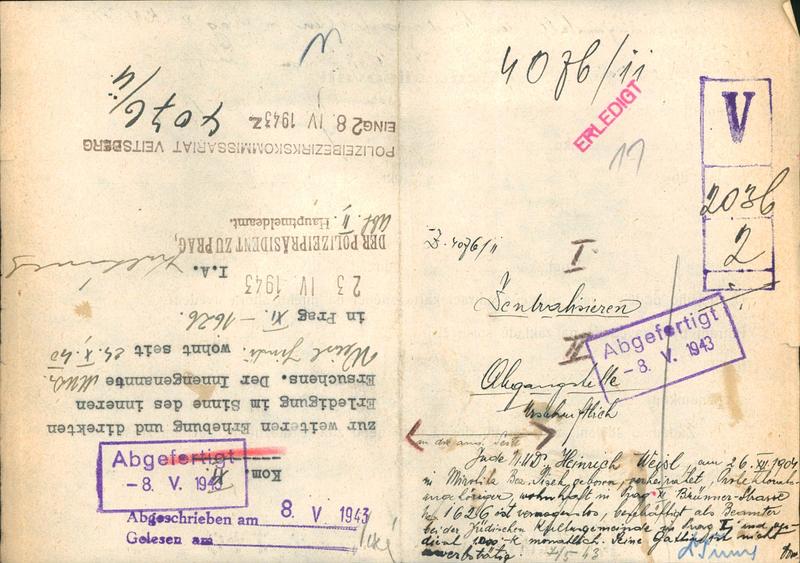 4076/II
POLIZEIBEZIRKSKOMMISSARIAT VEITSBERG
EING 28 IV 1943 Z.
4076/II
Abt. II. Hauptmeldeamt.
DER POLIZEIPRÄSIDENT ZU PRAG,
I.A.
23 IV 1943
in Prag XI. – 1626.
wohnt seit 24. X. 40
Ersuchens. Der Innengenannte
Erledigung im Sinne des inneren
zur weiteren Erhebung und direkten
Kom
Abgefertigt
– 8. V. 1943
Abgeschrieben am 8 V 1943
Gelesen am
ERLEDIGT
17
V
2036
2
Z. 4076/II
I
Zentralisieren
II
Abgefertigt
– 8. V. 1943
Abgangstelle
Urschriftlich
in die
Jude JUDr Heinrich Weisl am 26. XII. 1904
in Mirotitz Bez. Pisek geboren, verheiratet, Protektorats-
angehöriger, wohnhaft in Prag XI Brünner-Strasse
No 1626 ist vermögenslos, beschäftigt als Beamter
bei der Jüdischen Kultusgemeinde in Prag I und ver-
dient K monatlich. Seine Gattin ist nicht
erwerbstätig. 7/5 43